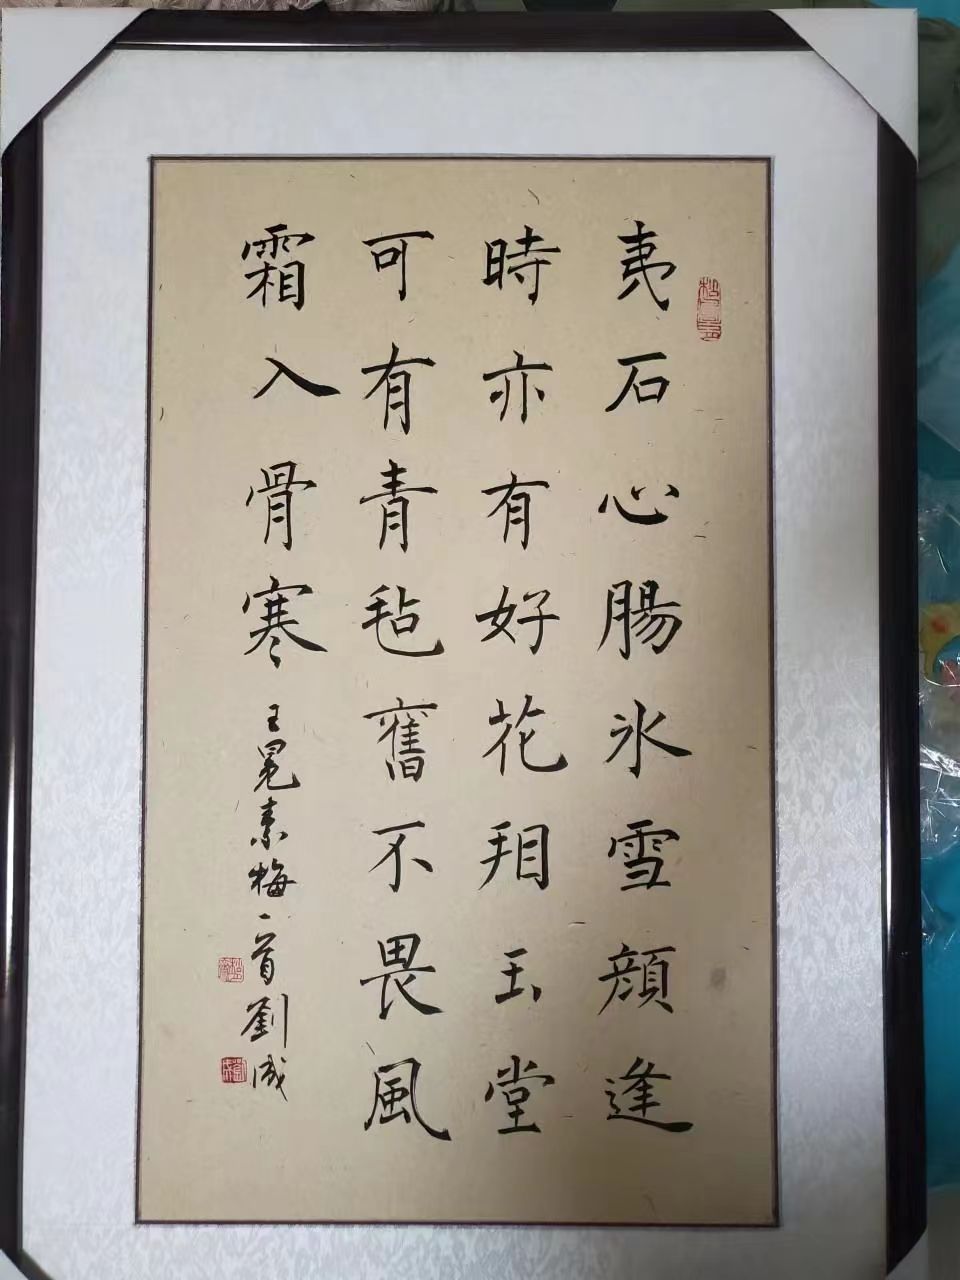 夷石心腸冰雪顔逢
時亦有好花看玉堂
可有青毡舊不畏風
霜入骨寒 王冕素梅一首劉成